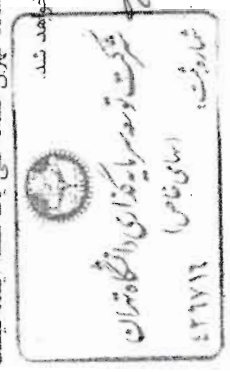 خواهد شد.
شرکت توسعه سرمایه گذاری دانشگاه تهران
(سهامی خاص)
شماره ثبت:
۴۲۹۷۱۶